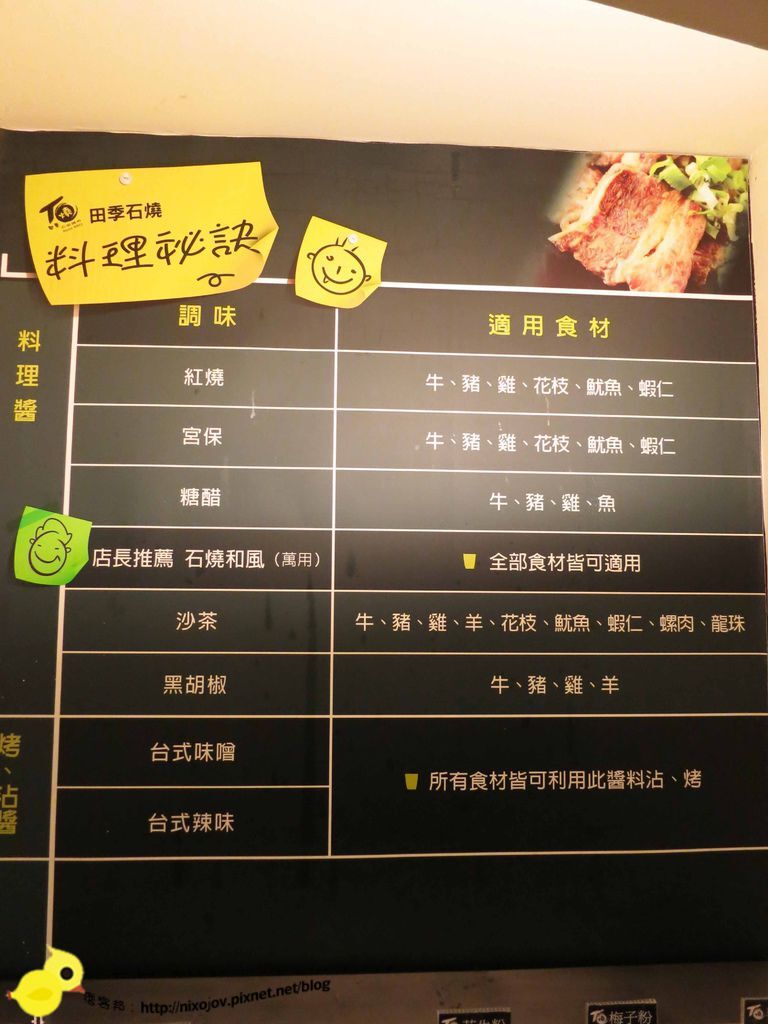 田季石燒
料理秘訣
料理醬
調味
適用食材
紅燒
牛、豬、雞、花枝、魷魚、蝦仁
宮保
牛、豬、雞、花枝、魷魚、蝦仁
糖醋
牛、豬、雞、魚
店長推薦 石燒和風（萬用）
全部食材皆可適用
沙茶
牛、豬、雞、羊、花枝、魷魚、蝦仁、螺肉、龍珠
黑胡椒
牛、豬、雞、羊
烤、沾醬
台式味噌
台式辣味
所有食材皆可利用此醬料沾、烤
http://nixojov.pixnet.net/blog
梅子粉